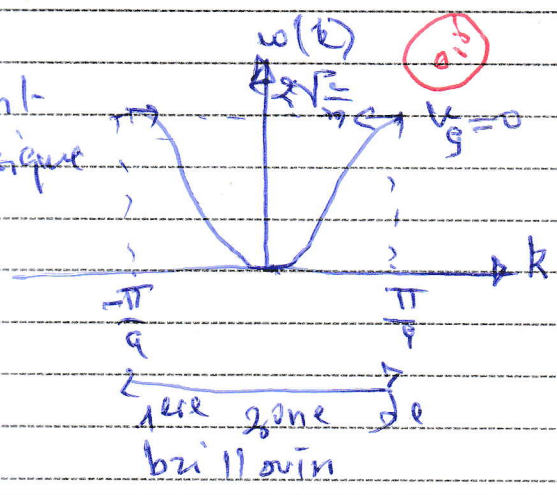 ω(k)
0,5
2√
Vg=0
ique
k
-π/a
π/a
1ere zone de
brillouin